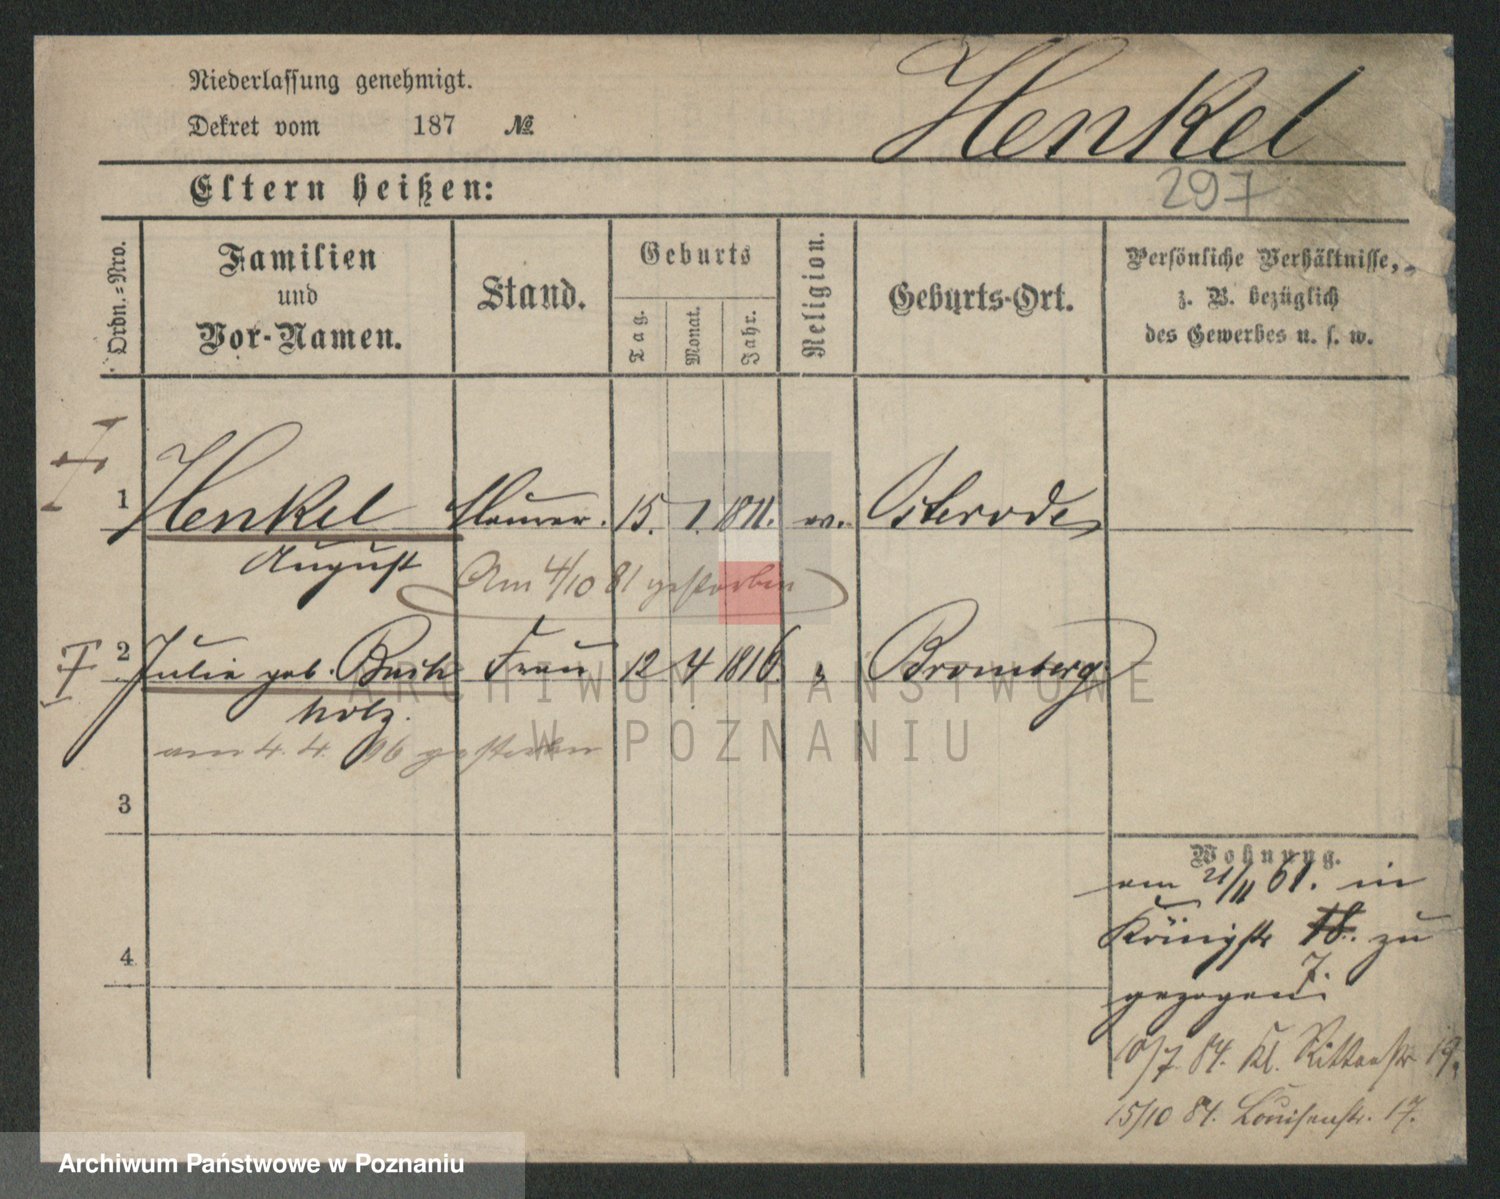 Niederlassung genehmigt.
Dekret vom 187 №
Henkel
Eltern heißen:
297
Ordn.=Nro.
Familien
und
Vor-Namen.
Stand.
Geburts
Tag.
Monat.
Jahr.
Religion.
Geburts-Ort.
Persönliche Verhältnisse,
z. B. bezüglich
des Gewerbes u. s. w.
1 Henkel Maurer. 15. 1. 1811. ev. Osterode
August
Am 4/10 81 gestorben
2 Julie geb. Buch Frau 12 4 1816 " Bromberg
holz.
am 4. 4. 96 gestorben
3
Wohnung.
am 21/11 61. in
Königstr 18. zu
4
7.
gezogen.
10/7 84. Kl. Ritterstr 19.
15/10 84. Louisenstr. 17.
ARCHIWUM PAŃSTWOWE
W POZNANIU
Archiwum Państwowe w Poznaniu